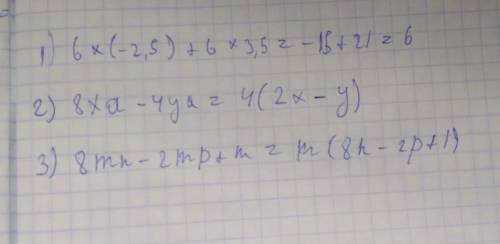 1) 6 × (-2,5) + 6 × 3,5 = -15 + 21 = 6
2) 8xa - 4ya = 4(2x - y)
3) 8mn - 2mp + m = m(8n - 2p + 1)